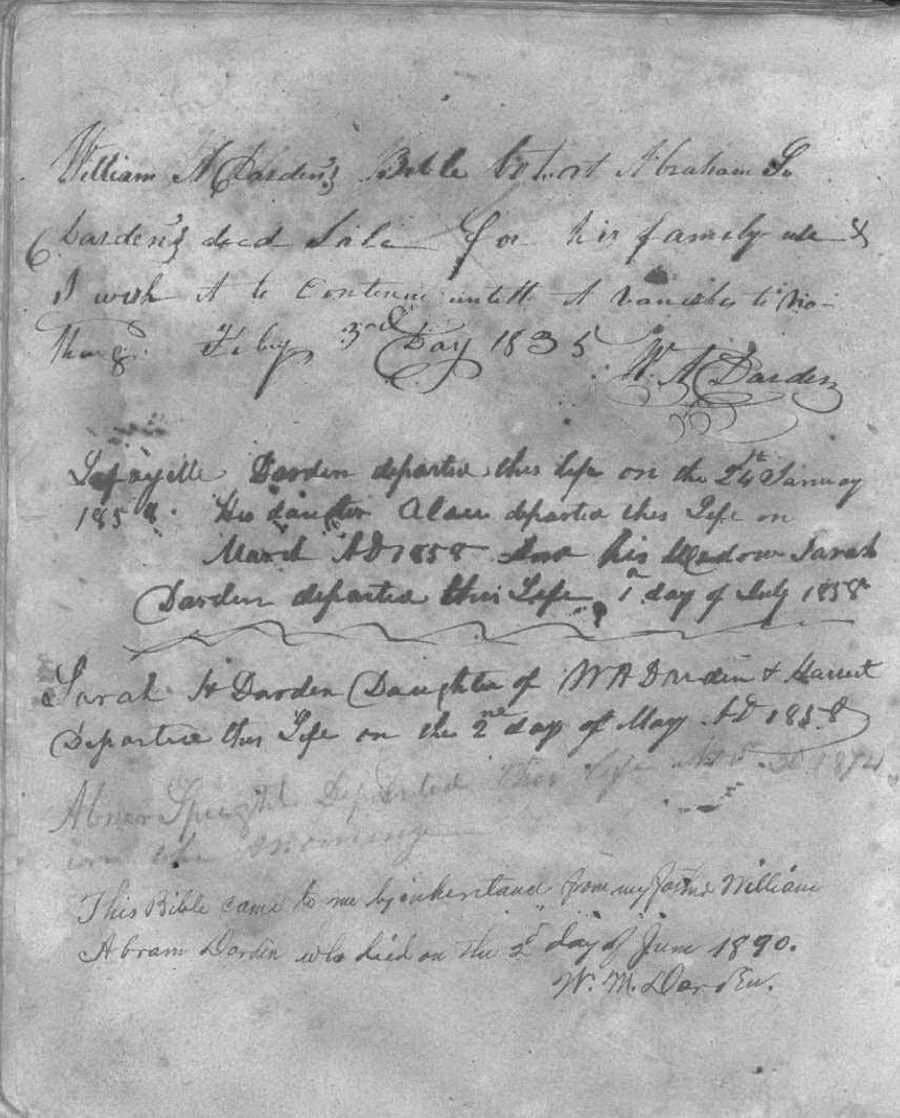 William A Darden's Bible bo't at Abraham
Darden's decd Sale for his family use &
I wish it to Continue untill it vanishes to No-
thing. Feby 3rd Day 1835 W. A Darden
Lafayette Darden departed this life on the 24th January
185 . His daughter departed this Life on
March AD 1858 And his Widow Sarah
Darden departed this Life 1 day of July 1858
Sarah H Darden Daughter of W A Darden & Harriet
Departed this Life on the 2nd day of May AD 1858
Abner Speight Departed this Life
in the morning
This Bible came to me by inheritance from my father William
Abram Darden who died on the 2d day of June 1890.
W. M. Darden.